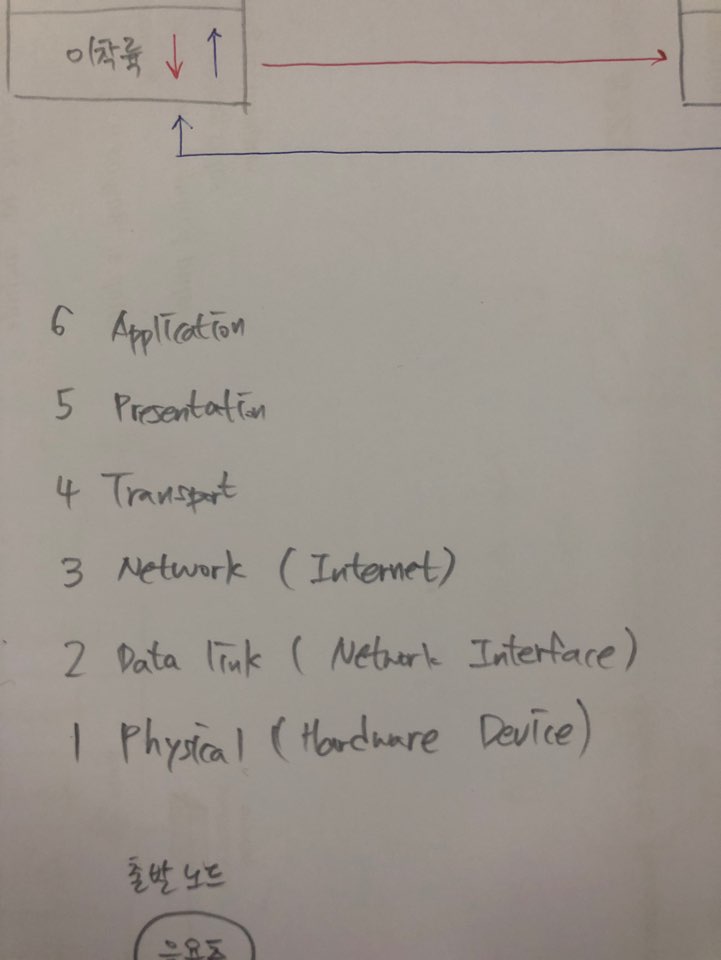 이착륙
6 Application
5 Presentation
4 Transport
3 Network (Internet)
2 Data link (Network Interface)
1 Physical (Hardware Device)
출발 노드
응용층